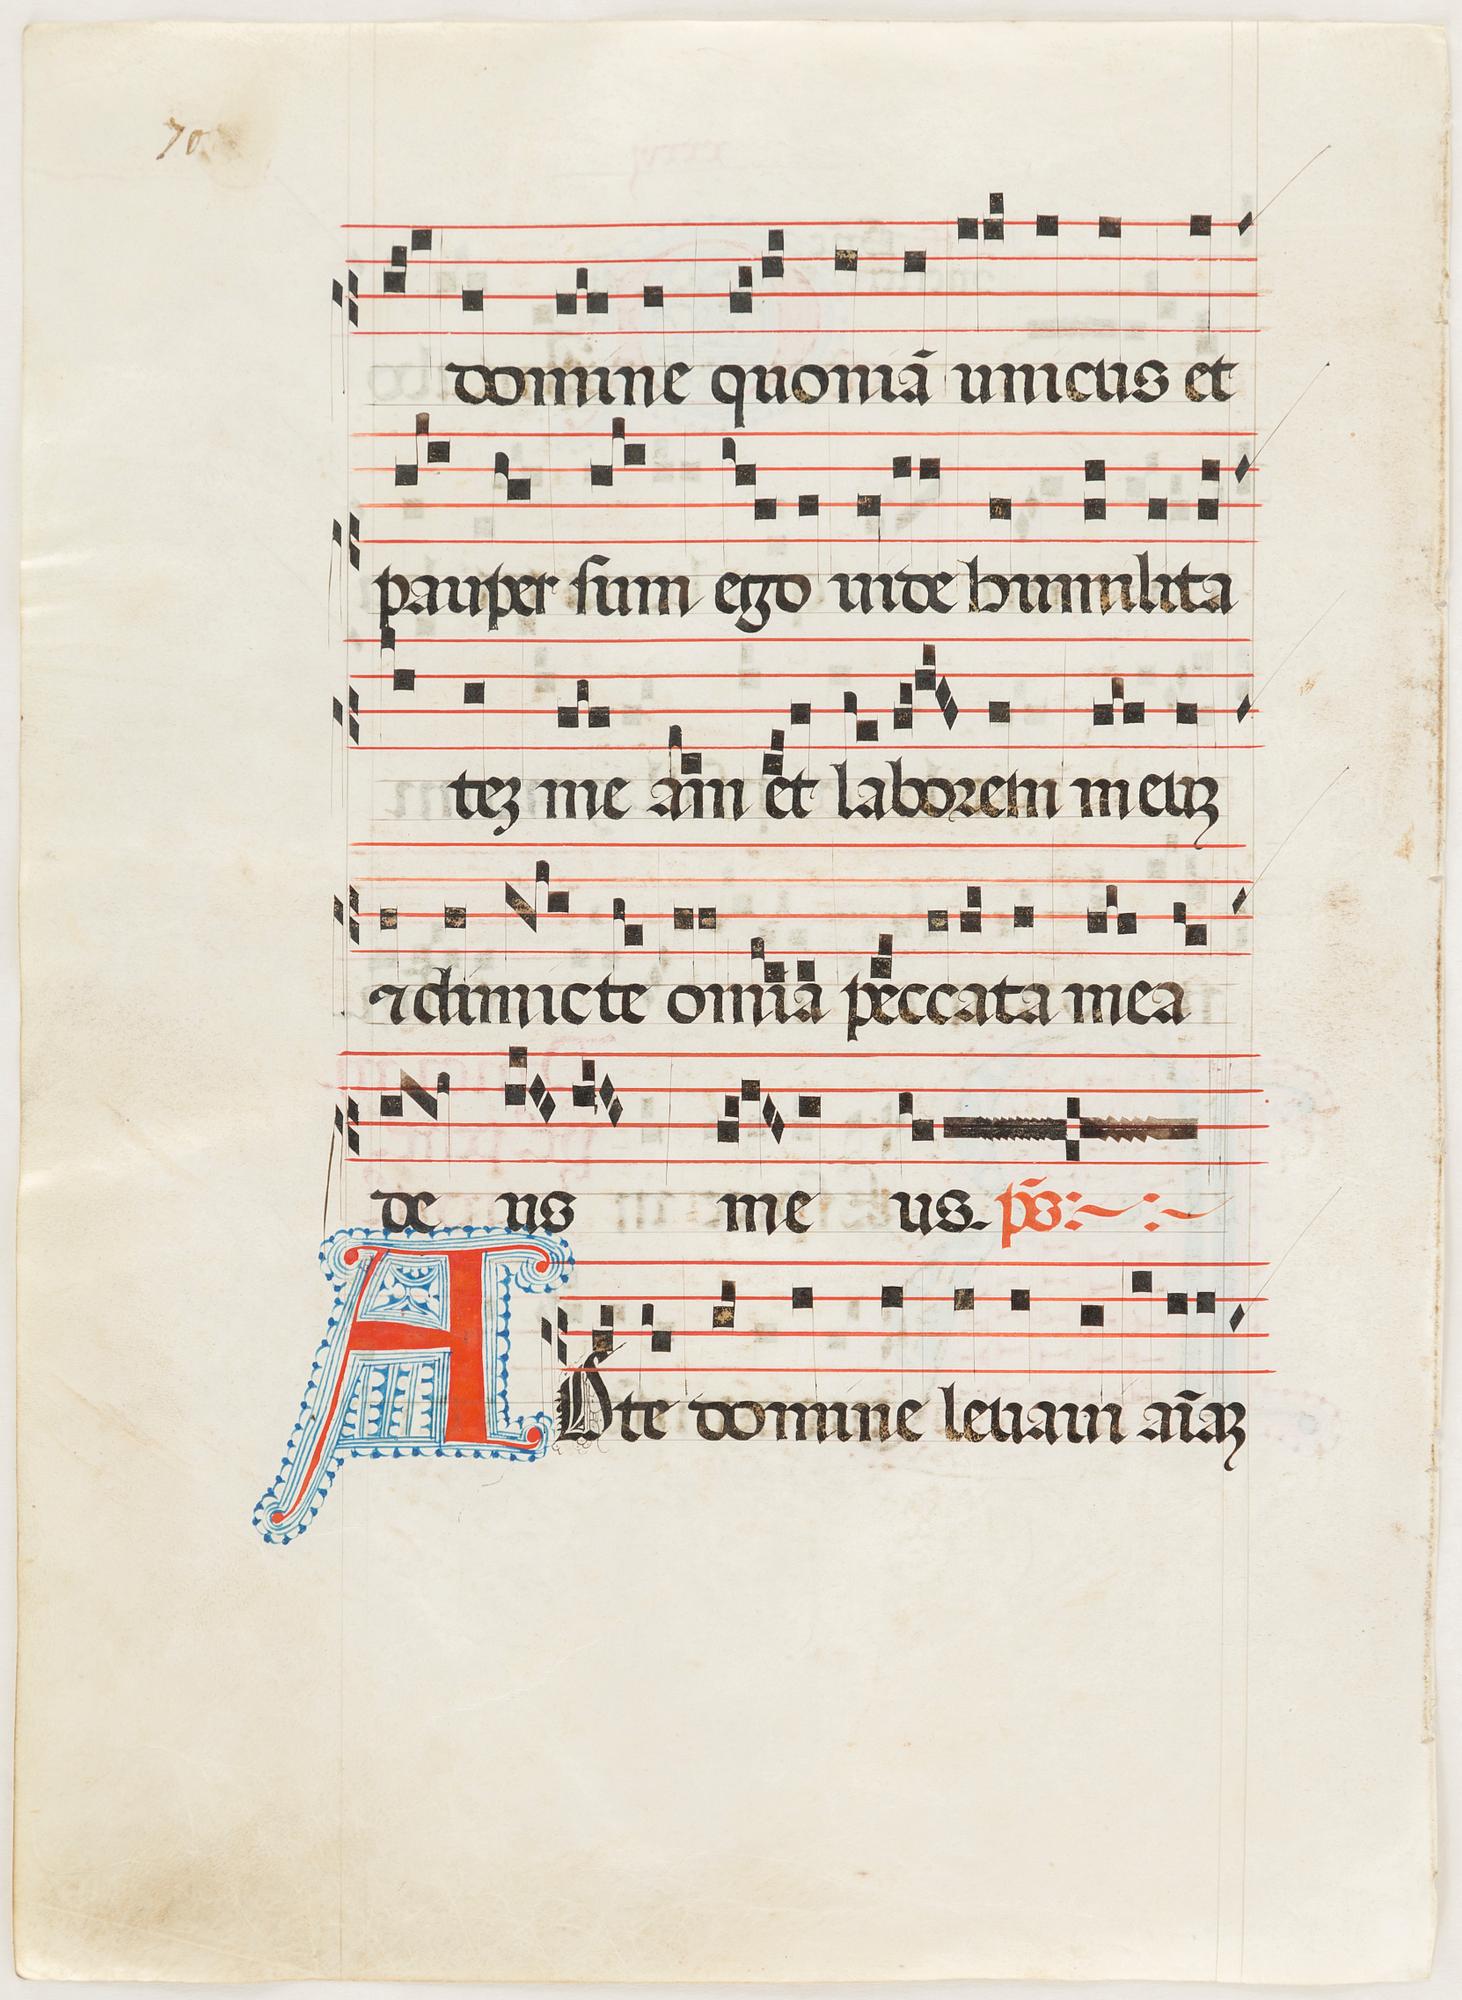 70
domine quoniā unicus et
pauper sum ego uide humilita
teꝫ me am et laborem meuꝫ
⁊ dimicte om̄ia peccata mea
de us me us. p̄s:~ :~
A Dte domine leuaui aīaꝫ